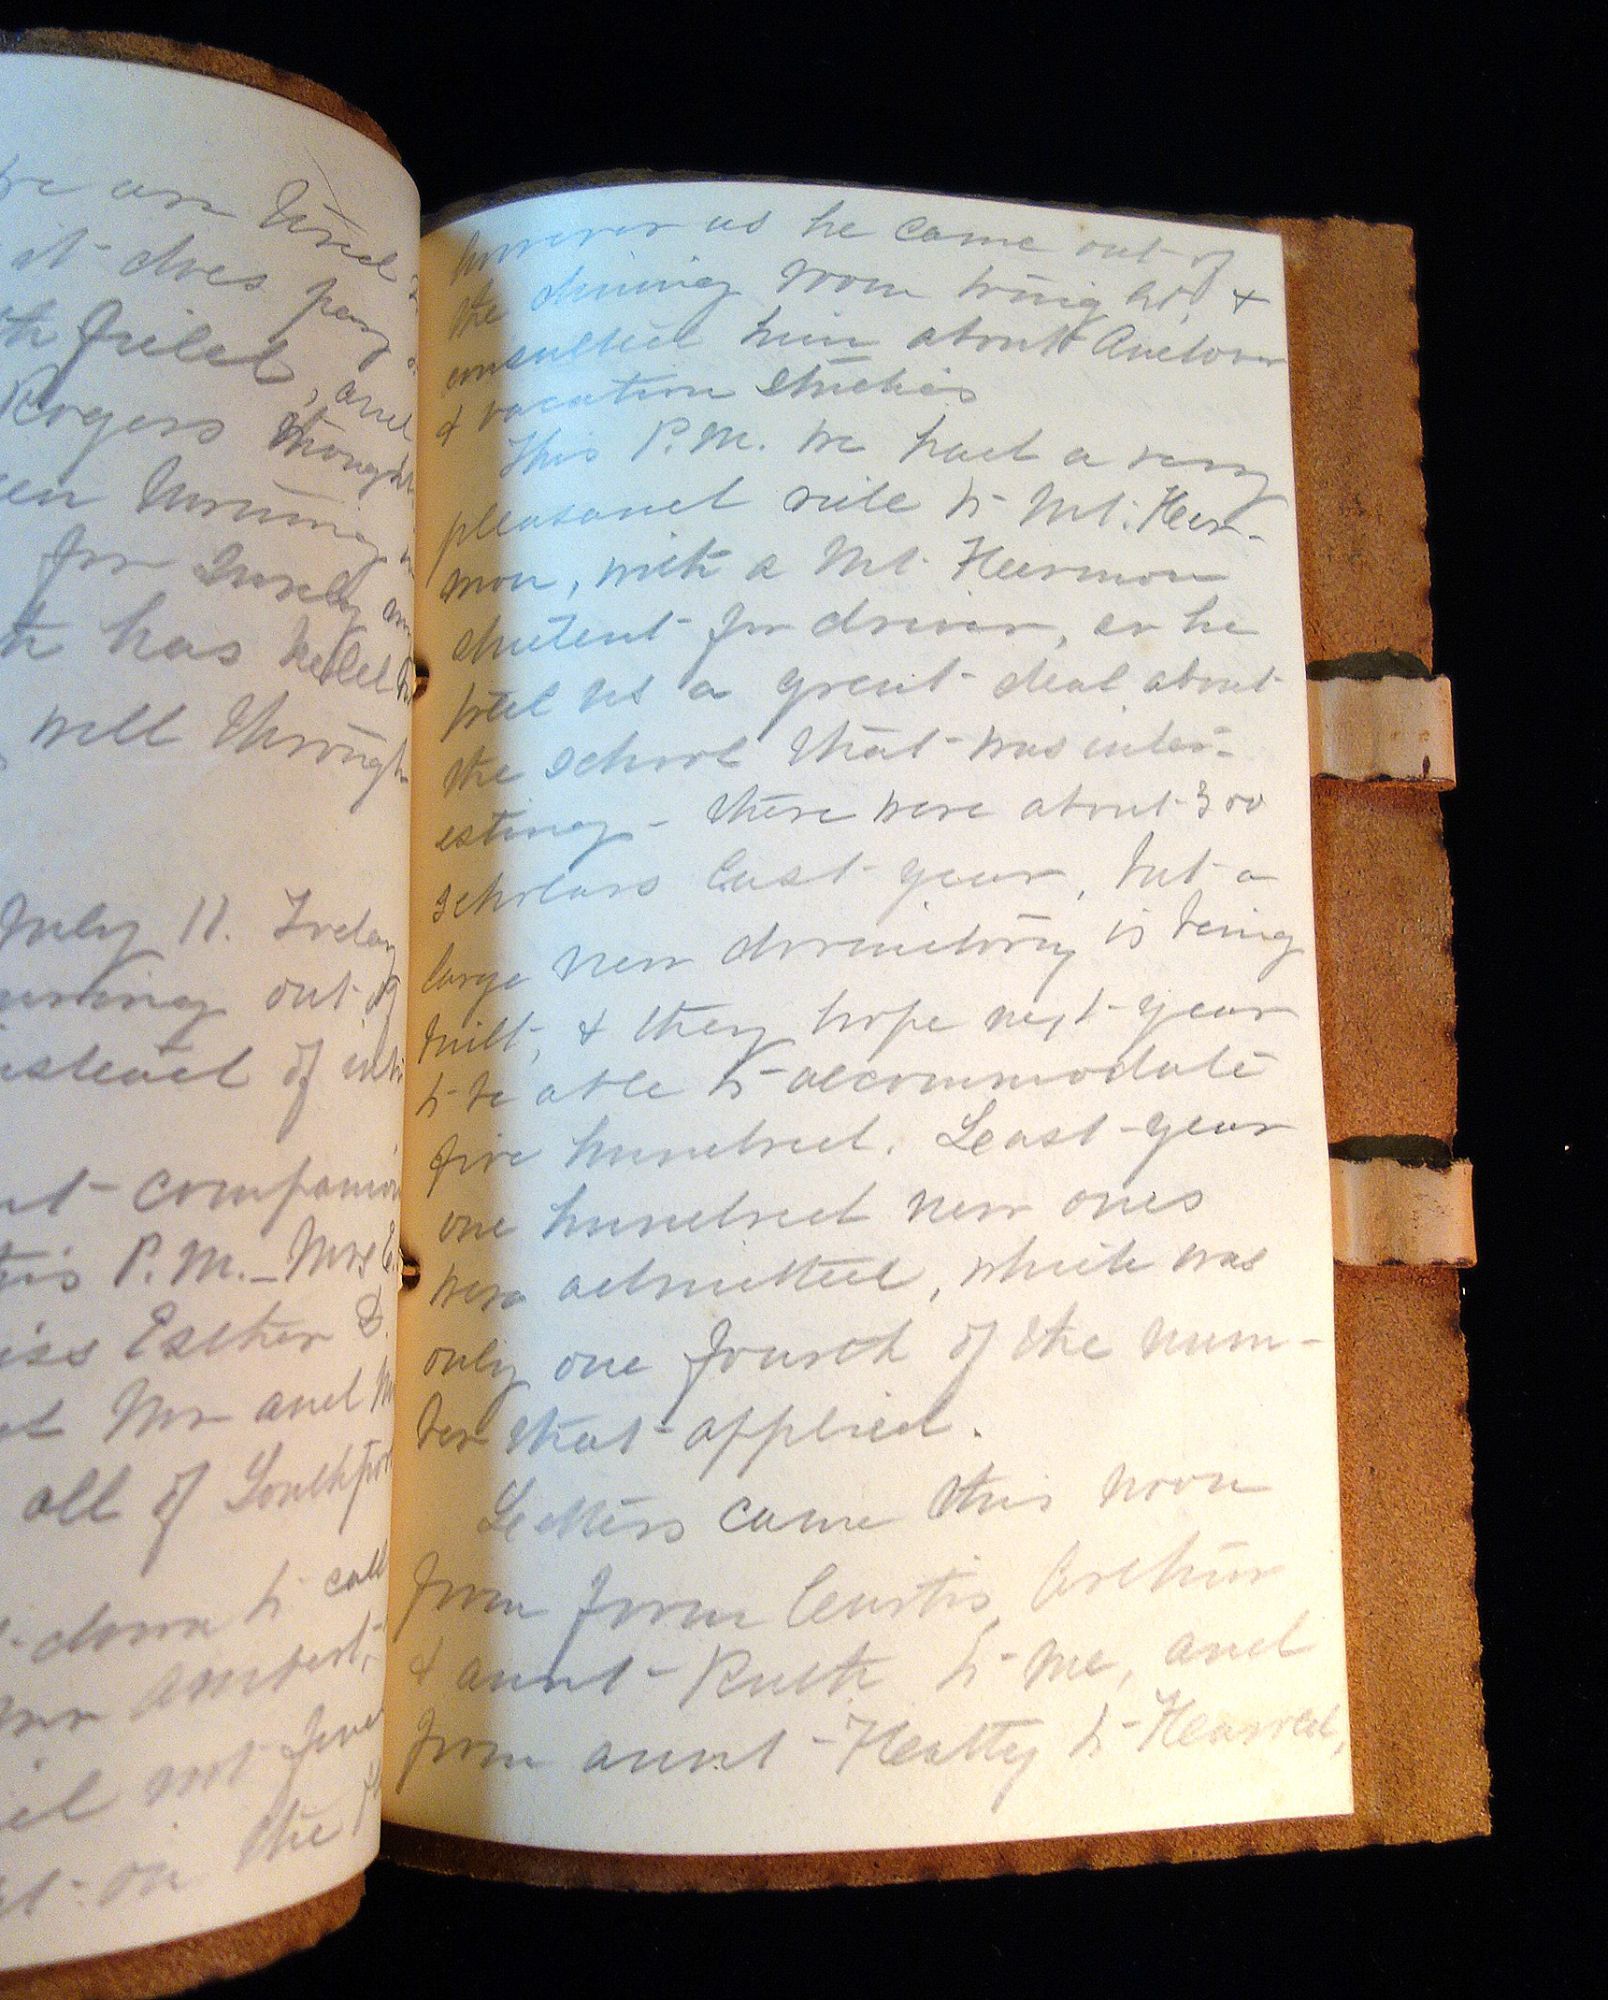 we are tired
it does pay
field, and
Rogers thought
morning
for Surely
has helped
will through
July 11. Friday
out of
instead of
companion
this P.M. - Mrs E.
Miss Esther B.
Mr and M
all of Southport
down to call
comfort,
not
on the
however as he came out of
the dining room tonight, &
consulted him about Andover
& vacation studies
This P.M. we had a very
pleasant ride to Mt. Her-
mon, with a Mt. Hermon
student for driver, as he
told us a great deal about
the school that was inter-
esting - there were about 300
scholars last year, but a
large new dormitory is being
built, & they hope next year
to be able to accommodate
five hundred. Last year
one hundred new ones
were admitted, which was
only one fourth of the num-
ber that applied.
Letters came this noon
from from Curtis, Arthur
& aunt Ruth to me, and
from aunt Hatty to